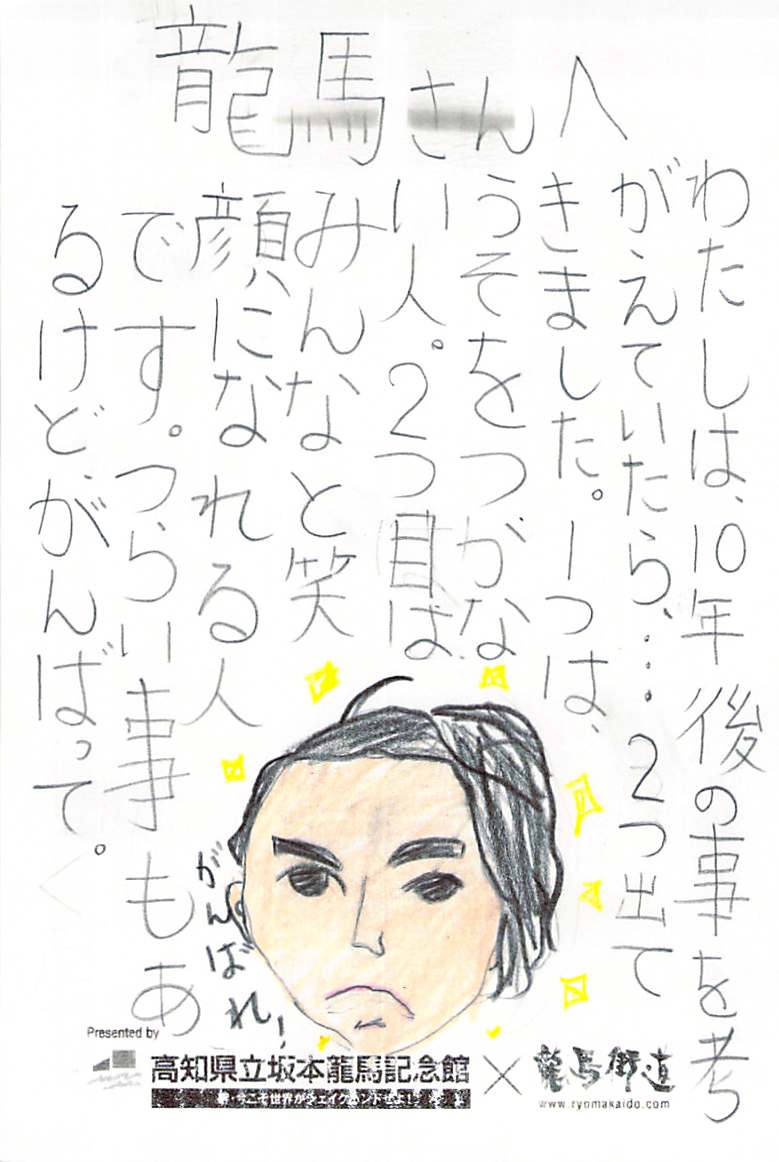 龍馬さんへ
わたしは、10年後の事を考
がえていたら、…2つ出て
きました。1つは、
うそをつがな
い人。2つ目は
みんなと笑
顔になれる人
です。つらい事もあ
るけどがんばって。
がんばれ!
Presented by
高知県立坂本龍馬記念館
×
龍馬街道
www.ryomakaido.com